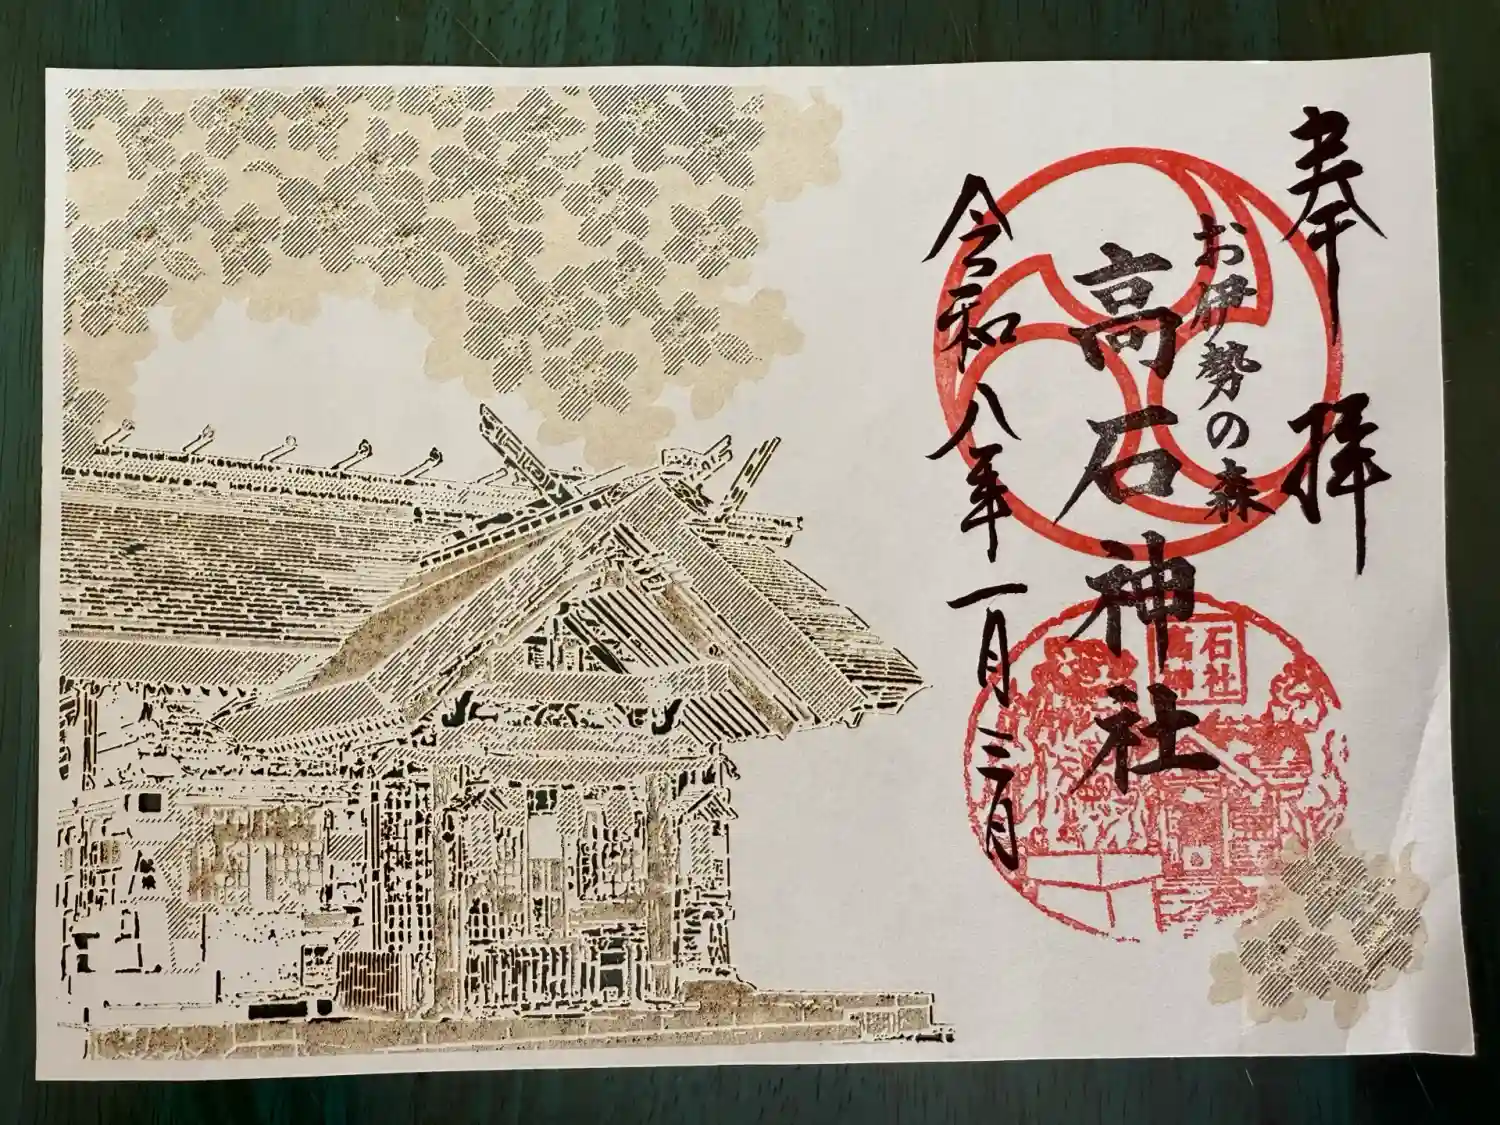 奉拝
お伊勢の森
高石神社
令和八年一月三日
高石
神社